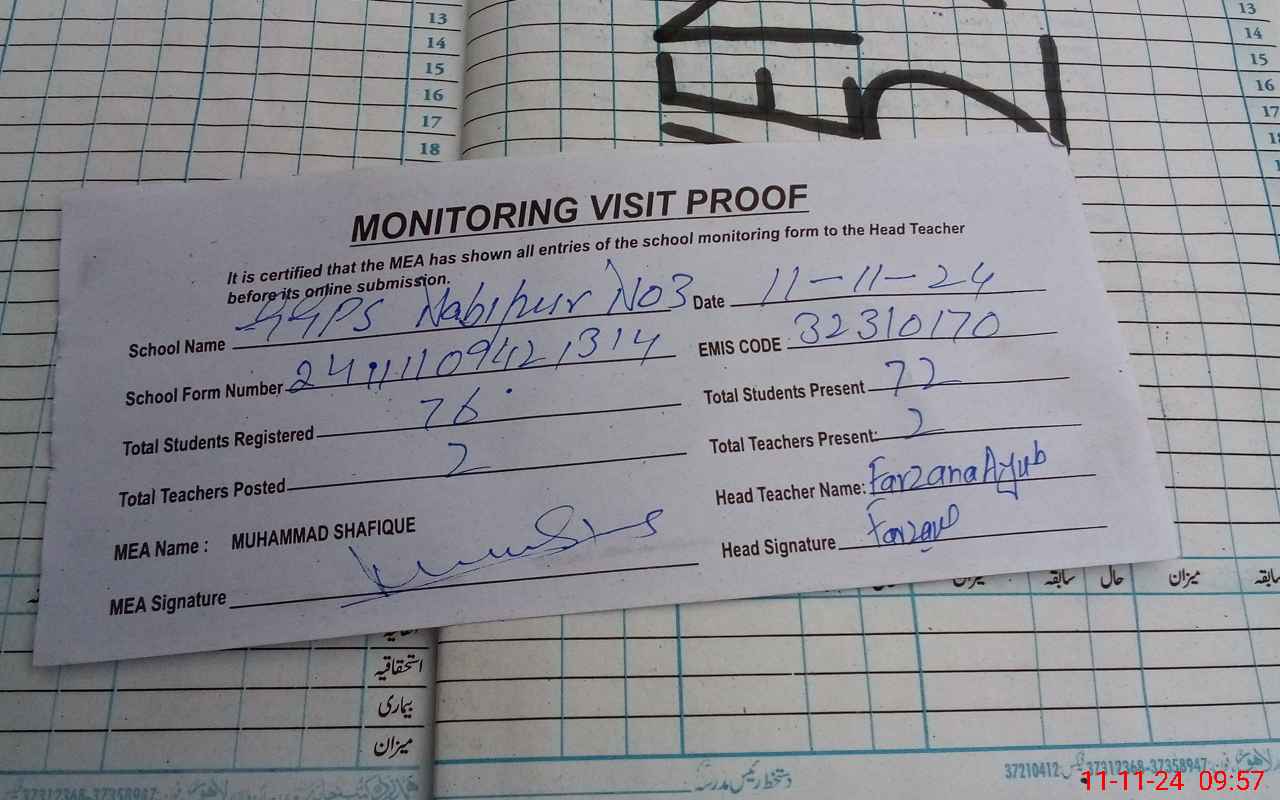 13
14
15
16
17
18
13
14
15
16
17
18
MONITORING VISIT PROOF
It is certified that the MEA has shown all entries of the school monitoring form to the Head Teacher
before its online submission.
School Name GGPS Nabipur No3 Date 11-11-24
School Form Number EMIS CODE : 32310170
Total Students Registered 76 Total Students Present 72
Total Teachers Posted 2 Total Teachers Present: 2
MEA Name : MUHAMMAD SHAFIQUE Head Teacher Name: Farzana Ayub
MEA Signature Head Signature Farzana
میزان سابقہ حال میزان سابقہ
استحقاقیہ
بیماری
میزان
دستخط رئیس مدرسہ
37312368-37358947
37210412 37312368-37358947
11-11-24 09:57